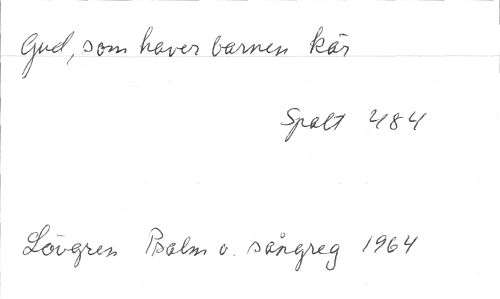 Gud, som haver barnen kär
Spalt 484
Lövgren Psalm o. sångreg 1964